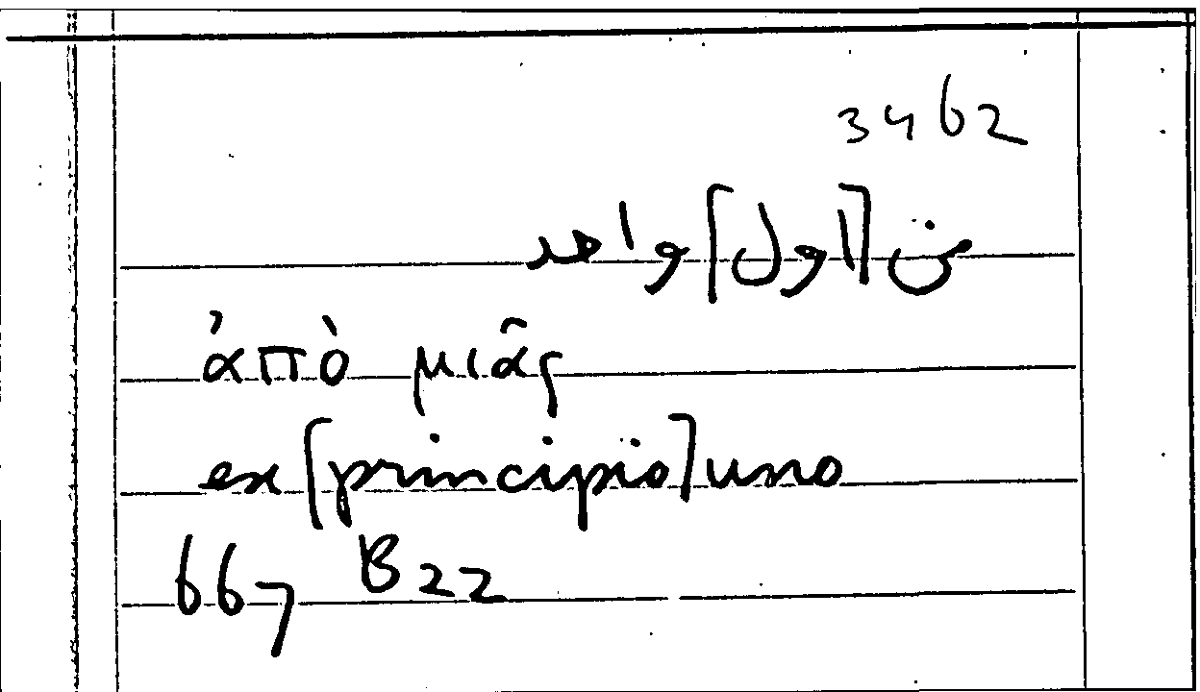 3462
من [اول] واحد
ἀπὸ μιᾶς
ex [principio] uno
667 B22